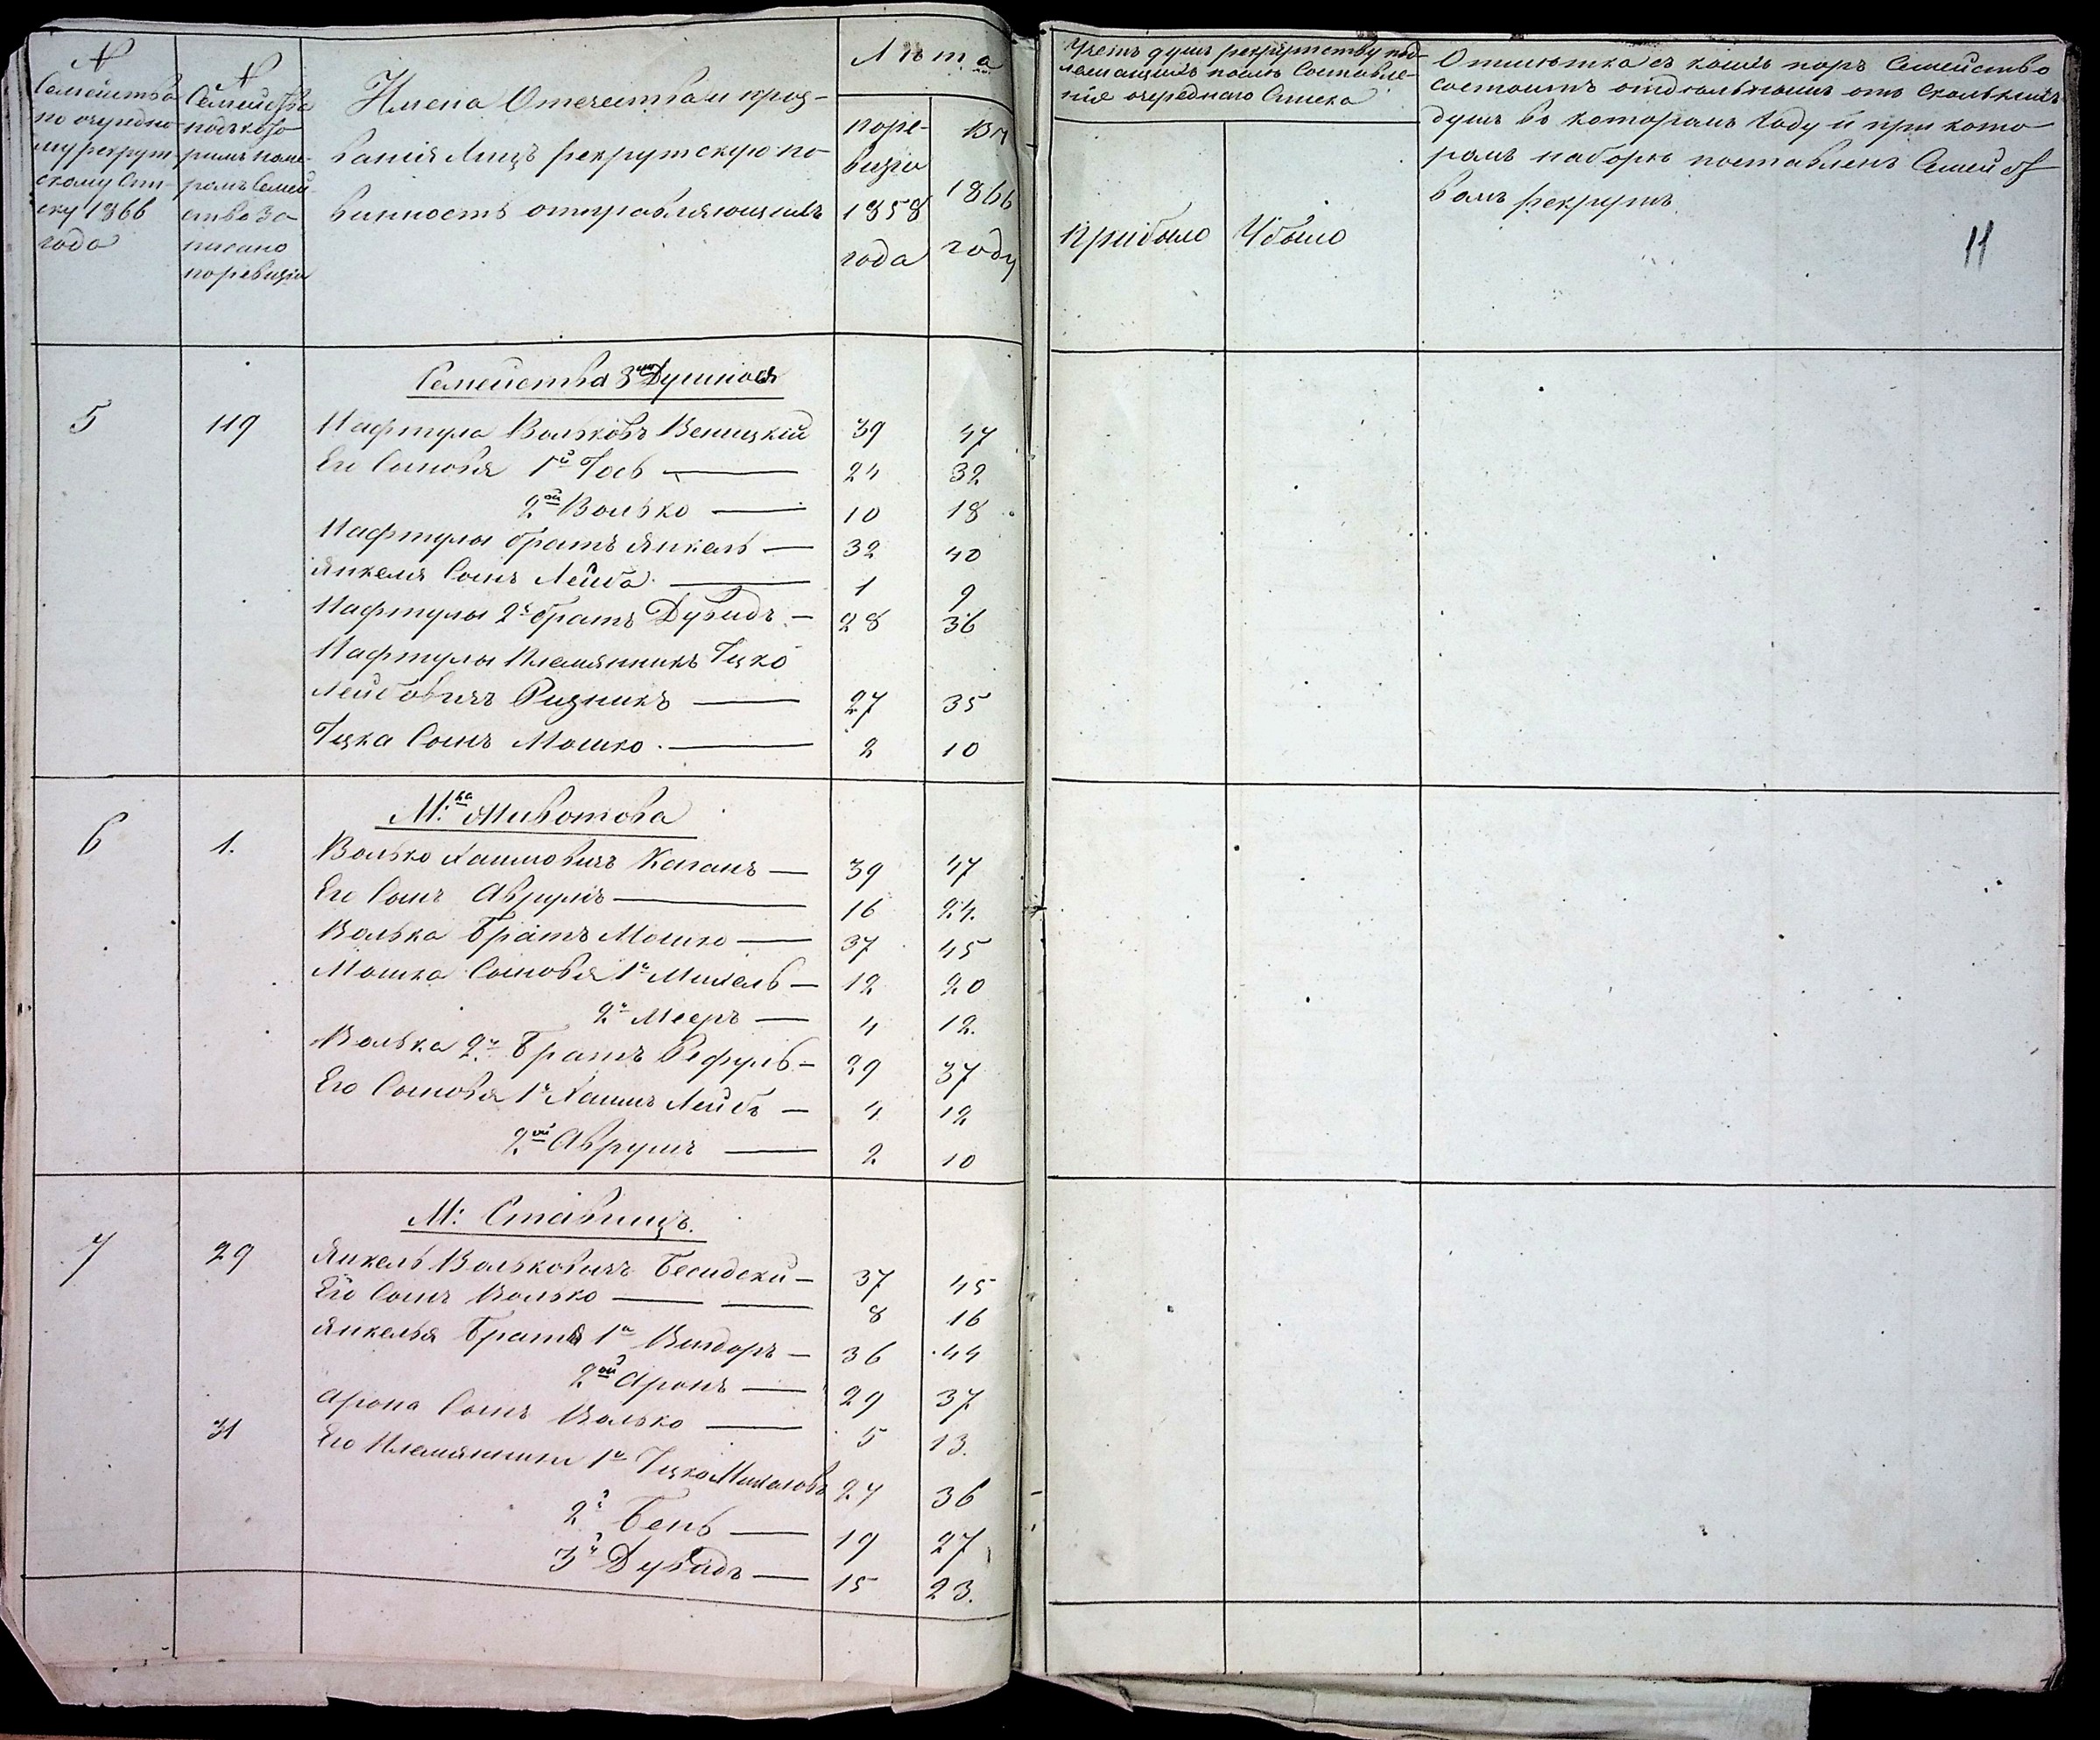 № Семейства по очередно-
му рекрут-
скому Спи-
ску 1866
года
№
Семейства
подъкото-
римъ номе-
ромъ Семей-
ство за-
писано
поревизіи
Имена Отечества и проз-
ванія Лицъ рекрутскую по-
винность отправляющихъ
Лѣта
поре-
визіи
1858
года
въ
1866
году
Учетъ душъ рекрутству под-
лежащихъ послѣ Составле-
ние очереднаго Списка
прибыло
Убыло
Отмѣтка съ коихъ поръ Семейство
состоитъ отдѣльнымъ отъ Сколькихъ
душъ въ которомъ году и при кото-
ромъ наборѣ поставленъ Семейст-
вомъ рекрутъ
11
Семейства 8ми Душнаго
5 119 Нафтула Вольковъ Веницкій 39 47
Его Сыновя 1й Іось 24 32
2ой Волько 10 18
Нафтулы братъ Янкель 32 40
Янкеля Сынъ Лейба 1 9
Нафтулы 2й братъ Дувидъ 28 36
Нафтулы Племянникъ Іцко
Лейбовичъ Ризникъ 27 35
Іцка Сынъ Мошко 2 10
М:ка Животова
6 1. Волько Хаимовичъ Каганъ 39 47
Его Сынъ Аврумъ 16 24.
Волька Братъ Мошко 37 45
Мошка Сыновя 1й Михель 12 20
2й Мееръ 4 12.
Волька 2й Братъ Рефуль 29 37
Его Сыновя 1й Хаимъ Лейбъ 4 12
2ой Аврумъ 2 10
М: Ставищъ.
7 29 Янкель Вольковичъ Бесидски 37 45
Его Сынъ Волько 8 16
Янкеля Братя 1й 36 44
2ой Аронъ 29 37
Арона Сынъ Волько 5 13.
31 Его Племянники 1й Іцко Михелёвъ 27 36
2й Бень 19 27
3й Дувидъ 15 23.